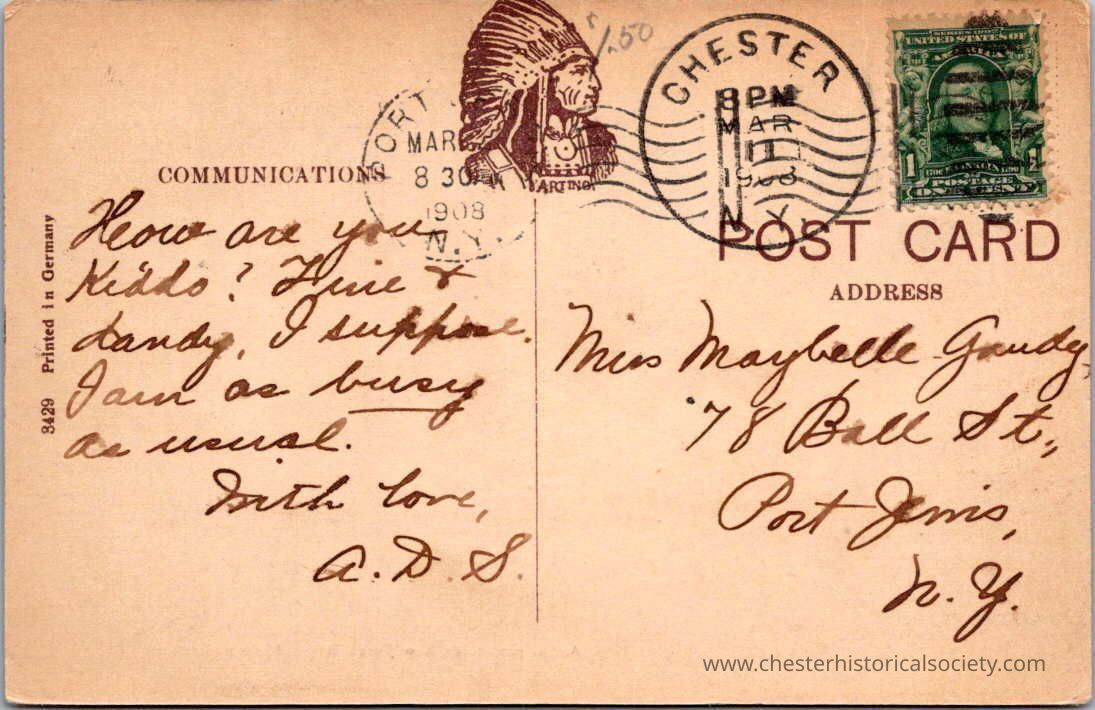 $1.50
CHESTER
8 PM
MAR
11
1908
N.Y.
SERIES 1902
UNITED STATES OF
AMERICA
1
POSTAGE
ONE CENT
PORT
MAR
8 30 A
1908
N.Y.
COMMUNICATIONS
POST CARD
ADDRESS
3429 Printed in Germany
How are you
Kiddo? Fine &
dandy, I suppose.
I am as busy
as usual.
With love,
A. D. S.
Miss Maybelle Gandy,
78 Ball St.,
Port Jervis,
N. Y.
www.chesterhistoricalsociety.com